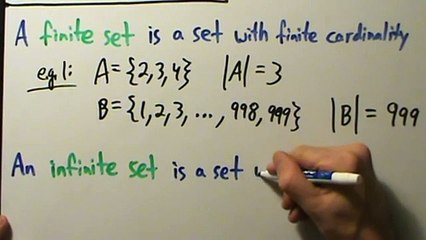 A finite set is a set with finite cardinality
eg.1: A={2,3,4} |A|=3
B={1,2,3,...,998,999} |B|=999
An infinite set is a set